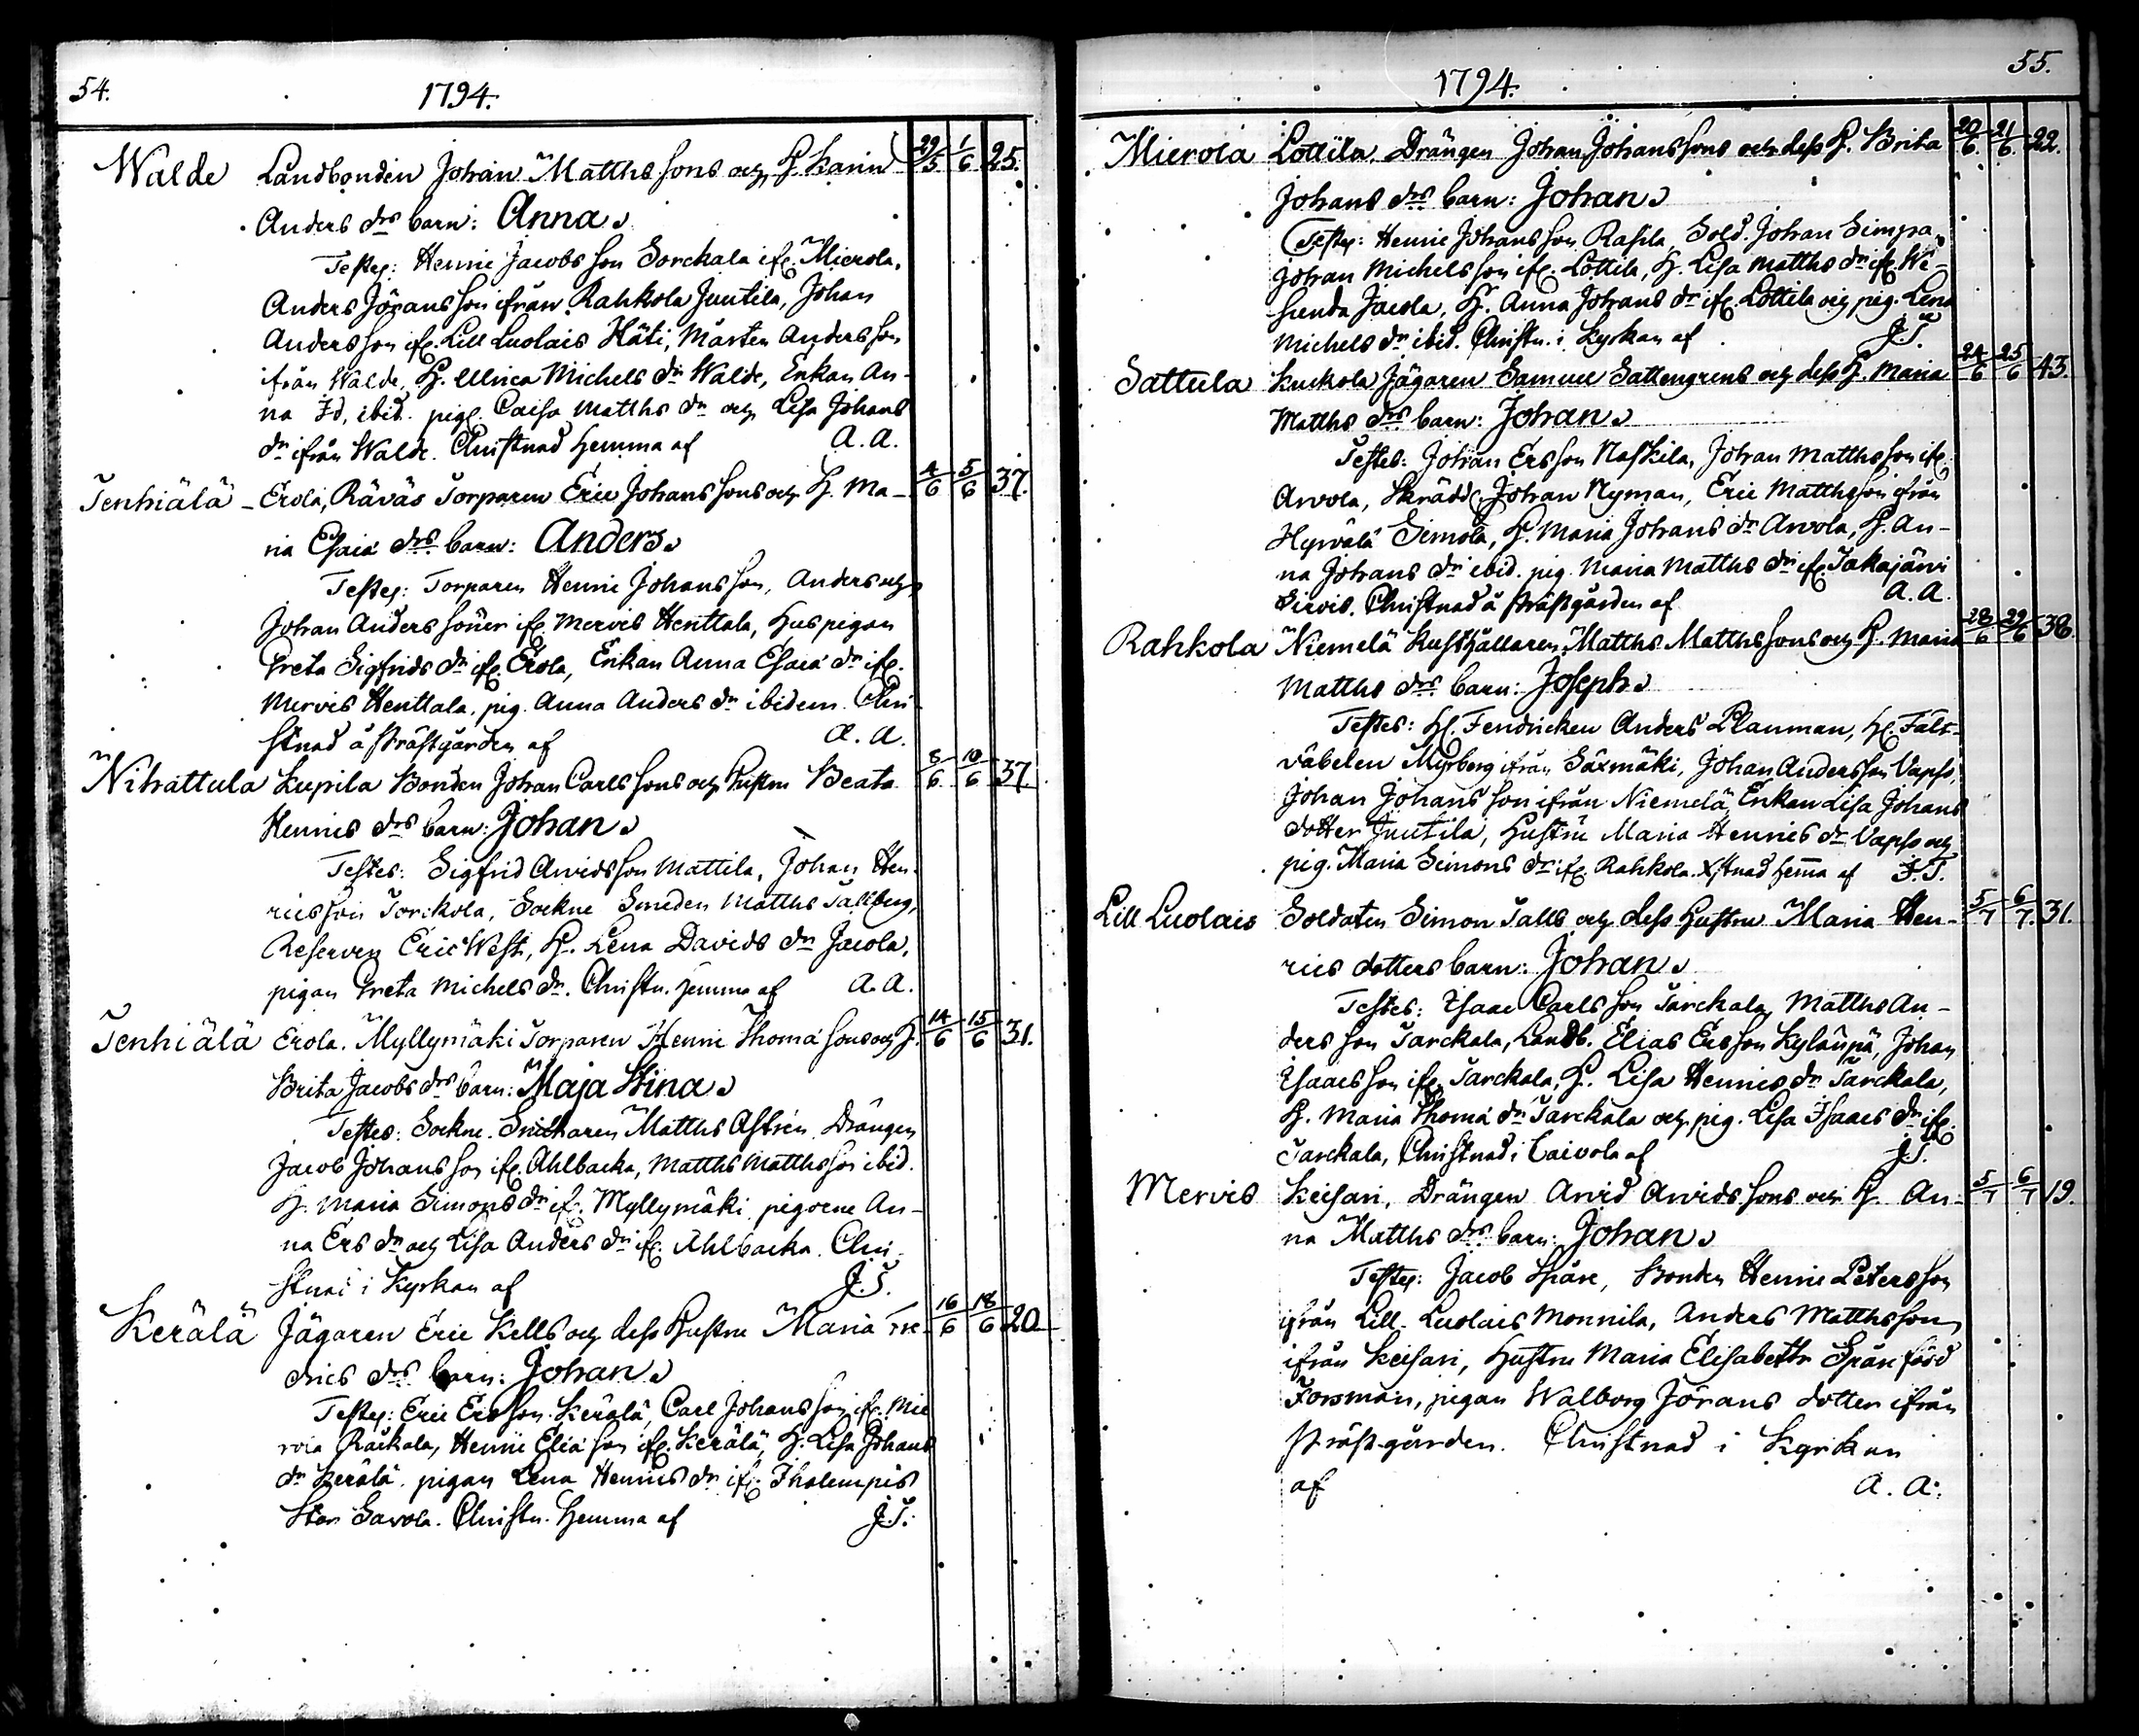 54.
1794.
Walde Landbonden Johan Matths sons och H. Karin 29/5 1/6 25.
Anders drs barn: Anna.
Testes: Henric Jacobs son Sorckala ifr. Mierola,
Anders Jörans son ifrån Rahkola Juutila, Johan
Anders son ifr. Lill Luolais Häti, Mårten Anders son
ifrån Walde, H. Ulrica Michels dr Walde, Enkan An-
na Id. ibid. pig. Caisa Matths dr och Lisa Johans
dr ifrån Walde. Christnad hemma af A. A.
Tenhiälä - Erola, Räväs Torparen Eric Johans sons och H. Ma- 4/6 5/6 37.
ria Esaiæ drs barn: Anders.
Testes: Torparen Henric Johans son, Anders och
Johan Anders söner ifr. Mervis Henttala, Huspigan
Greta Sigfrids dr ifr. Erola, Enkan Anna Esaiæ dr ifr.
Mervis Henttala, pig. Anna Anders dr ibidem. Chri-
stnad å Prästgården af A. A.
Nihattula Kupila Bonden Johan Carls sons och Hustru Beata 8/6 10/6 37.
Henrics drs barn: Johan.
Testes: Sigfrid Arvids son Mattila, Johan Hen-
rics son Torckola, Sockne Smeden Matths Tallberg,
Reserven Eric West, H. Lena Davids dr Jacola,
pigan Greta Michels dr. Christn. hemma af A. A.
Tenhiälä Erola. Myllymäki Torparen Henric Thomæ sons och H. 14/6 15/6 31.
Brita Jacobs drs barn: Maja Stina.
Testes: Sockne Snickaren Matths Astrén, Drängen
Jacob Johans son ifr. Ahlbacka, Matths Matths son ibid.
H. Maria Simons dr ifr. Myllymäki, pigorne An-
na Ers dr och Lisa Anders dr ifr. Ahlbacka. Chri-
stnad i Kyrkan af J. T.
Kerälä Jägaren Eric Kells och dess Hustru Maria Fre- 16/6 18/6 20
drics drs barn: Johan.
Testes: Eric Ers son Kerälä, Carl Johans son ifr. Mie
rola Råckala, Henric Eliæ son ifr. Kerälä, H. Lisa Johans
dr Kerälä, pigan Lena Henrics dr ifr. Ihalempis
Stor Savola. Christn. hemma af J. T.
55.
1794.
Mierola Lottila, Drängen Johan Johans sons och dess H. Brita 20/6 21/6 22.
Johans drs barn: Johan.
Testes: Henric Johans son Rasila, Sold. Johan Simpa,
Johan Michels son ifr. Lottila, H. Lisa Matths dr ifr. We-
senda Jacola, H. Anna Johans dr ifr. Lottila och pig. Lena
Michels dr ibid. Christn. i Kyrkan af J. T.
Sattula Kuckola Jägaren Samuel Sattengrens och dess H. Maria 24/6 25/6 43.
Matths drs barn: Johan.
Testes: Johan Ers son Naskila, Johan Matths son ifr.
Arvola, Skrädd. Johan Nyman, Eric Matths son ifrån
Hyrvälä Simola, H. Maria Johans dr Arvola, H. An-
na Johans dr ibid. pig. Maria Matths dr ifr. Takajärvi
Sirvis. Christnad å Prästgården af A. A.
Rahkola Niemelä Rusthållaren Matths Matths sons och H. Maria 28/6 29/6 38.
Matths drs barn: Joseph.
Testes: H. Fendricken Anders Planman, H. Fält-
väbelen Myrberg ifrån Säxmäki, Johan Anders son Vapso,
Johan Johans son ifrån Niemelä, Enkan Lisa Johans
dotter Juutila, Hustru Maria Henrics dr Vapso och
pig. Maria Simons dr ifr. Rahkola. Xstnad hemma af J. T.
Lill Luolais Soldaten Simon Talls och dess Hustru Maria Hen- 5/7 6/7. 31.
rics dotters barn: Johan.
Testes: Isaac Carls son Tarckala, Matths An-
ders son Tarckala, Landb. Elias Ers son Kylänpä, Johan
Isaacs son ifr. Tarckala, H. Lisa Henrics dr Tarckala,
H. Maria Thomæ dr Tarckala och pig. Lisa Isaacs dr ifr.
Tarckala, Christnad i Caivola af J. T.
Mervis Keisari, Drängen Arvid Arvids sons och H. An- 5/7 6/7 19.
na Matths drs barn: Johan.
Testes: Jacob Späre, Bonden Henric Peters son
ifrån Lill Luolais Monnila, Anders Matths son
ifrån Keisari, Hustru Maria Elisabeth Spåre född
Forsman, pigan Walborg Jörans dotter ifrån
Prästgården. Christnad i Kyrkan
af A. A.